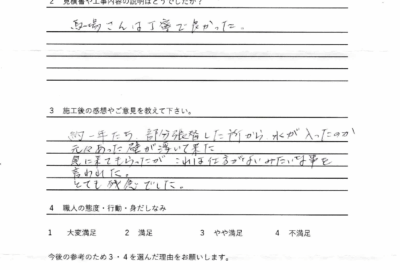 2 見積書や工事内容の説明はどうでしたか？
馬場さんは丁寧で良かった。
3 施工後の感想やご意見を教えて下さい。
約一年たち、部分張替した所から水が入ったのか
元々あった壁が浮いて来た
見に来てもらったが これは仕方がないみたいな事を
言われた。
とても残念でした。
4 職人の態度・行動・身だしなみ
1 大変満足 2 満足 3 やや満足 4 不満足
今後の参考のため３・４を選んだ理由をお願いします。